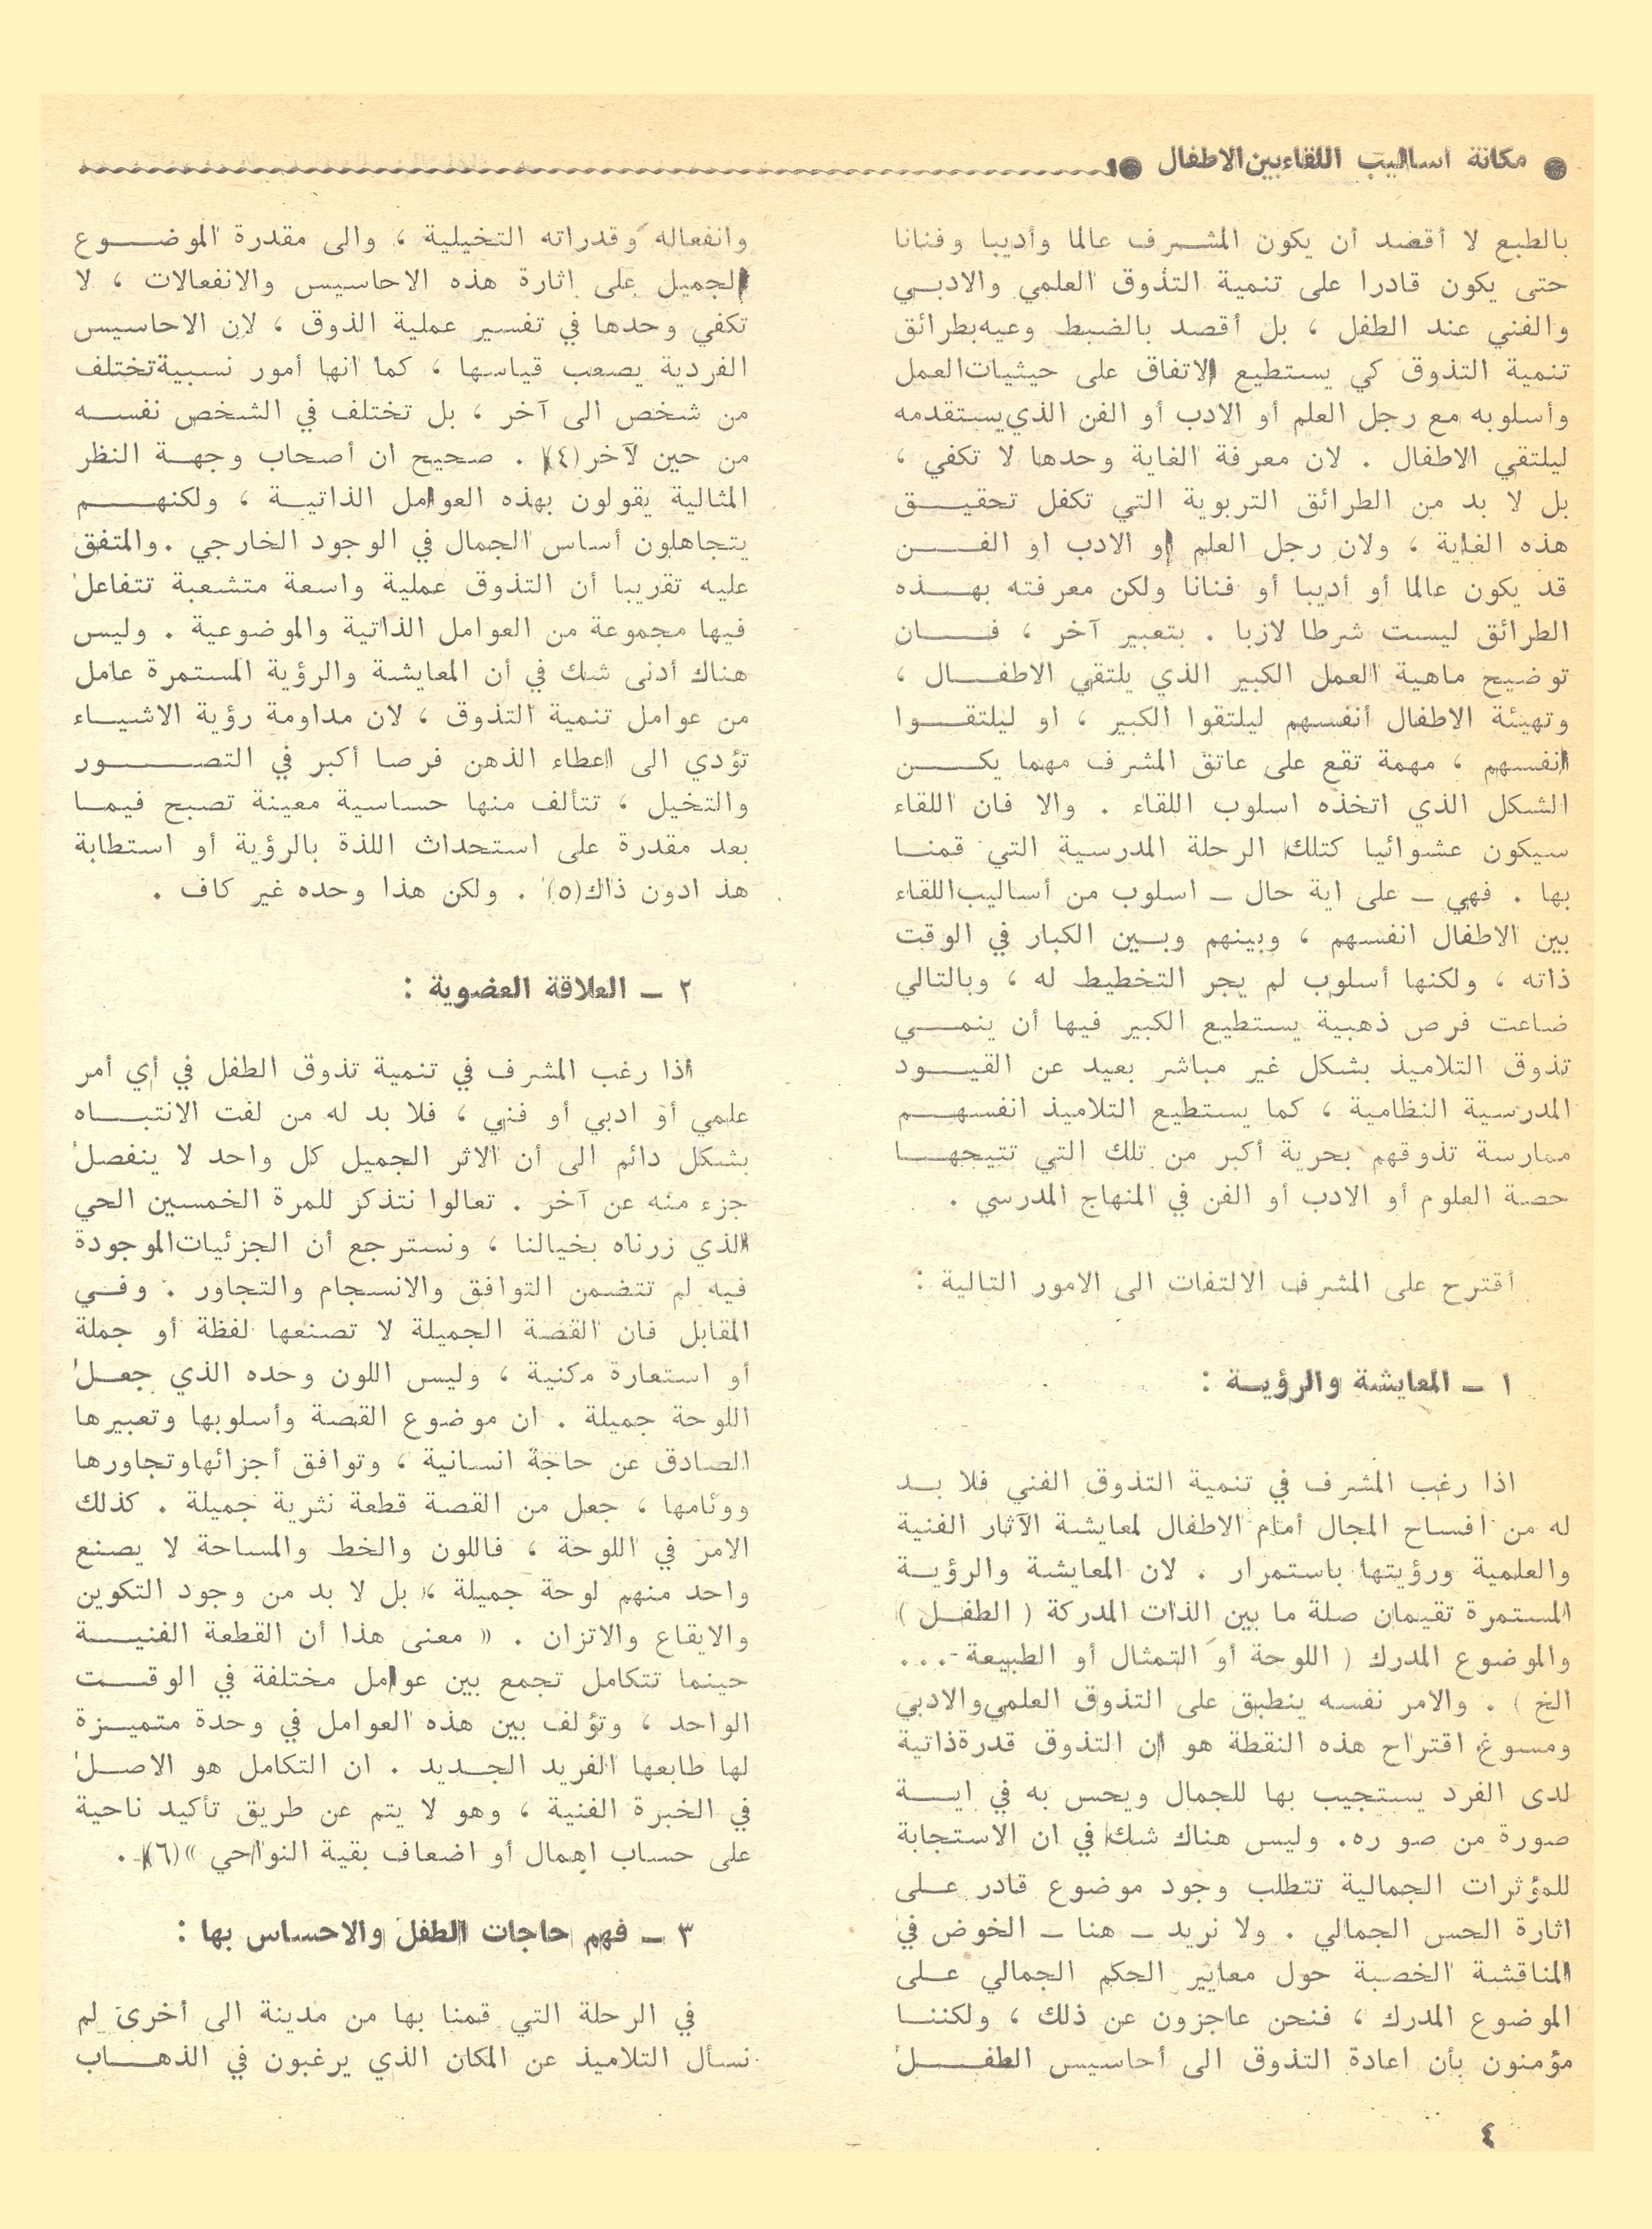 مكانة أساليب اللقاء بين الاطفال
بالطبع لا أقصد أن يكون المشرف عالما وأديبا وفنانا
حتى يكون قادرا على تنمية التذوق العلمي والادبي
والفني عند الطفل ، بل أقصد بالضبط وعيه بطرائق
تنمية التذوق كي يستطيع الاتفاق على حيثيات العمل
وأسلوبه مع رجل العلم أو الادب أو الفن الذي يستقدمه
ليلتقي الاطفال . لان معرفة الغاية وحدها لا تكفي ،
بل لا بد من الطرائق التربوية التي تكفل تحقيق
هذه الغاية ، ولان رجل العلم او الادب او الفن
قد يكون عالما أو أديبا أو فنانا ولكن معرفته بهذه
الطرائق ليست شرطا لازبا . بتعبير آخر ، فان
توضيح ماهية العمل الكبير الذي يلتقي الاطفال ،
وتهيئة الاطفال أنفسهم ليلتقوا الكبير ، او ليلتقوا
انفسهم ، مهمة تقع على عاتق المشرف مهما يكن
الشكل الذي اتخذه اسلوب اللقاء . والا فان اللقاء
سيكون عشوائيا كتلك الرحلة المدرسية التي قمنا
بها . فهي – على اية حال – اسلوب من أساليب اللقاء
بين الاطفال انفسهم ، وبينهم وبين الكبار في الوقت
ذاته ، ولكنها أسلوب لم يجر التخطيط له ، وبالتالي
ضاعت فرص ذهبية يستطيع الكبير فيها أن ينمي
تذوق التلاميذ بشكل غير مباشر بعيد عن القيود
المدرسية النظامية ، كما يستطيع التلاميذ انفسهم
ممارسة تذوقهم بحرية أكبر من تلك التي تتيحها
حصة العلوم أو الادب أو الفن في المنهاج المدرسي .
أقترح على المشرف الالتفات الى الامور التالية :
١ – المعايشة والرؤية :
اذا رغب المشرف في تنمية التذوق الفني فلا بد
له من افساح المجال أمام الاطفال لمعايشة الآثار الفنية
والعلمية ورؤيتها باستمرار . لان المعايشة والرؤية
المستمرة تقيمان صلة ما بين الذات المدركة ( الطفل )
والموضوع المدرك ( اللوحة أو التمثال أو الطبيعة ...
الخ ) . والامر نفسه ينطبق على التذوق العلمي والادبي
ومسوغ اقتراح هذه النقطة هو ان التذوق قدرة ذاتية
لدى الفرد يستجيب بها للجمال ويحس به في اية
صورة من صو ره. وليس هناك شك في ان الاستجابة
للمؤثرات الجمالية تتطلب وجود موضوع قادر على
اثارة الحس الجمالي . ولا نريد – هنا – الخوض في
المناقشة الخصبة حول معايير الحكم الجمالي على
الموضوع المدرك ، فنحن عاجزون عن ذلك ، ولكننا
مؤمنون بأن اعادة التذوق الى أحاسيس الطفل
وانفعاله وقدراته التخيلية ، والى مقدرة الموضوع
الجميل على اثارة هذه الاحاسيس والانفعالات ، لا
تكفي وحدها في تفسير عملية الذوق ، لان الاحاسيس
الفردية يصعب قياسها ، كما انها أمور نسبية تختلف
من شخص الى آخر ، بل تختلف في الشخص نفسه
من حين لآخر(٤) . صحيح ان أصحاب وجهة النظر
المثالية يقولون بهذه العوامل الذاتية ، ولكنهم
يتجاهلون أساس الجمال في الوجود الخارجي . والمتفق
عليه تقريبا أن التذوق عملية واسعة متشعبة تتفاعل
فيها مجموعة من العوامل الذاتية والموضوعية . وليس
هناك أدنى شك في أن المعايشة والرؤية المستمرة عامل
من عوامل تنمية التذوق ، لان مداومة رؤية الاشياء
تؤدي الى اعطاء الذهن فرصا أكبر في التصور
والتخيل ، تتألف منها حساسية معينة تصبح فيما
بعد مقدرة على استحداث اللذة بالرؤية أو استطابة
هذ ادون ذاك(٥) . ولكن هذا وحده غير كاف .
٢ – العلاقة العضوية :
اذا رغب المشرف في تنمية تذوق الطفل في أي أمر
علمي أو ادبي أو فني ، فلا بد له من لفت الانتباه
بشكل دائم الى أن الاثر الجميل كل واحد لا ينفصل
جزء منه عن آخر . تعالوا نتذكر للمرة الخمسين الحي
الذي زرناه بخيالنا ، ونسترجع أن الجزئيات الموجودة
فيه لم تتضمن التوافق والانسجام والتجاور . وفي
المقابل فان القصة الجميلة لا تصنعها لفظة أو جملة
أو استعارة مكنية ، وليس اللون وحده الذي جعل
اللوحة جميلة . ان موضوع القصة وأسلوبها وتعبيرها
الصادق عن حاجة انسانية ، وتوافق أجزائها وتجاورها
ووئامها ، جعل من القصة قطعة نثرية جميلة . كذلك
الامر في اللوحة ، فاللون والخط والمساحة لا يصنع
واحد منهم لوحة جميلة ، بل لا بد من وجود التكوين
والايقاع والاتزان . « معنى هذا أن القطعة الفنية
حينما تتكامل تجمع بين عوامل مختلفة في الوقت
الواحد ، وتؤلف بين هذه العوامل في وحدة متميزة
لها طابعها الفريد الجديد . ان التكامل هو الاصل
في الخبرة الفنية ، وهو لا يتم عن طريق تأكيد ناحية
على حساب اهمال أو اضعاف بقية النواحي »(٦) .
٣ – فهم حاجات الطفل والاحساس بها :
في الرحلة التي قمنا بها من مدينة الى أخرى لم
نسأل التلاميذ عن المكان الذي يرغبون في الذهاب
٤